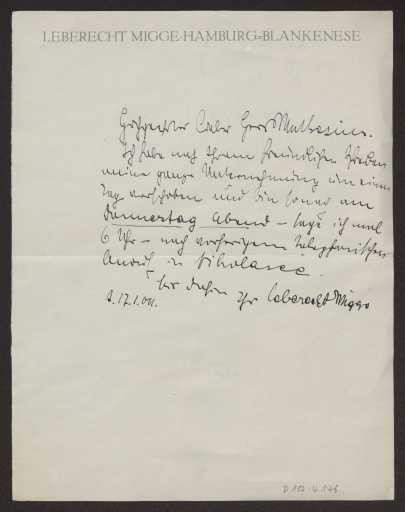 LEBERECHT MIGGE-HAMBURG-BLANKENESE
Geehrter Lieber Herr Muthesius.
Ich habe nach Ihrem freundlichen Schreiben
meine ganze Unternehmung um einen
Tag verschoben und bin somit am
Donnerstag Abend – sage ich mal
6 Uhr – nach vorherigem telephonischen
Anruf in Nikolassee.
Ihr Leberecht Migge
17.1.